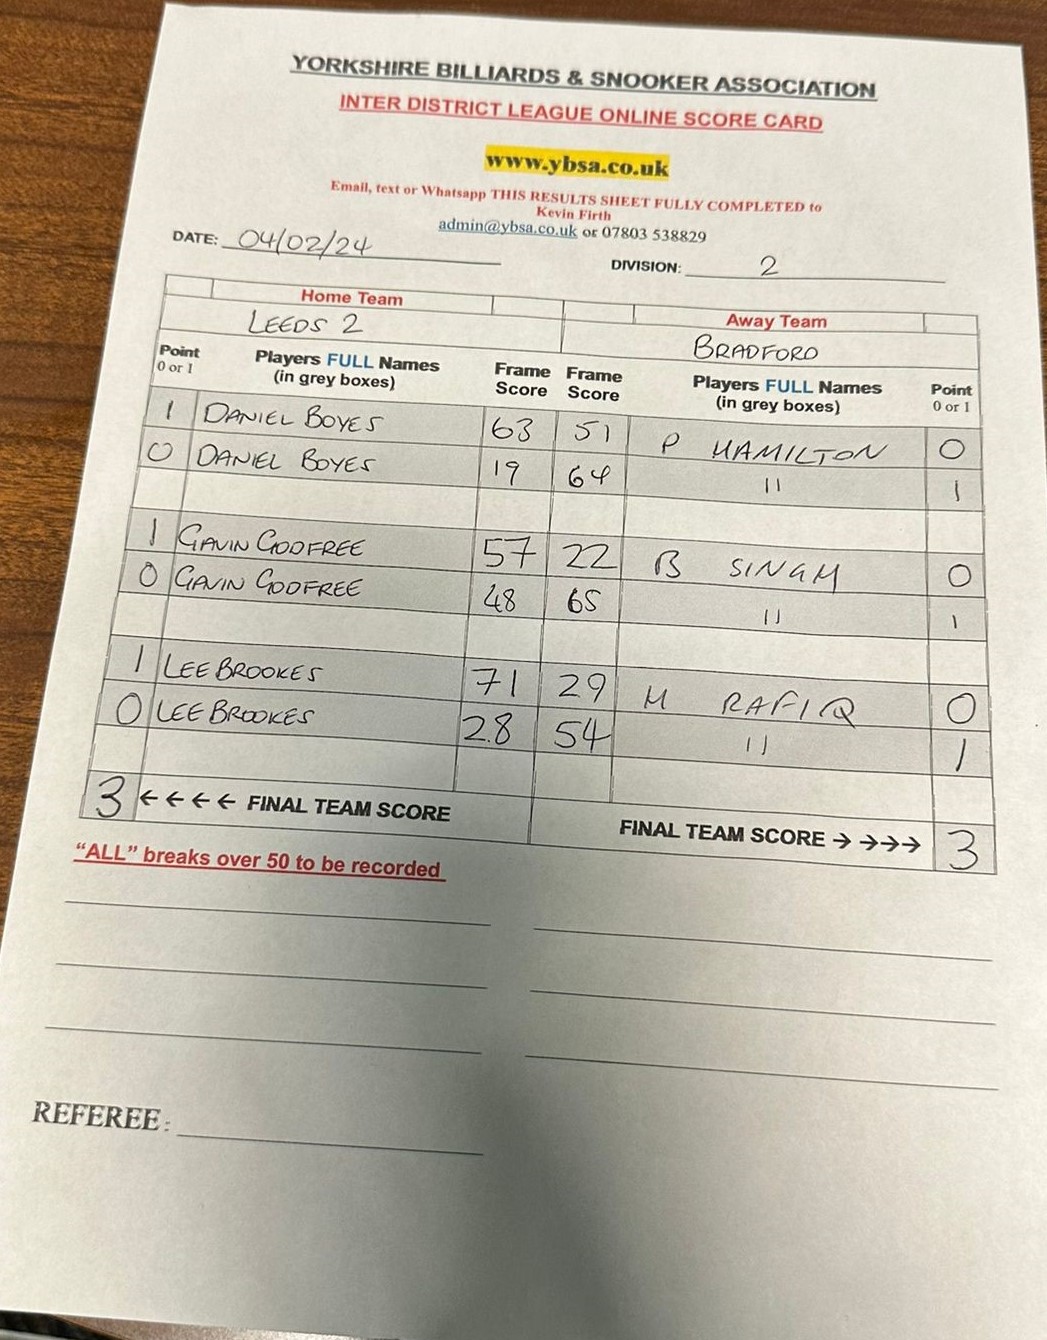 YORKSHIRE BILLIARDS & SNOOKER ASSOCIATION
INTER DISTRICT LEAGUE ONLINE SCORE CARD
www.ybsa.co.uk
Email, text or Whatsapp THIS RESULTS SHEET FULLY COMPLETED to
Kevin Firth
admin@ybsa.co.uk or 07803 538829
DATE: 04/02/24
DIVISION: 2
Home Team Away Team
LEEDS 2 BRADFORD
Point Players FULL Names Frame Frame Players FULL Names Point
0 or 1 (in grey boxes) Score Score (in grey boxes) 0 or 1
1 DANIEL BOYES 63 51 P HAMILTON 0
0 DANIEL BOYES 19 64 " 1
1 GAVIN GODFREE 57 22 B SINGH 0
0 GAVIN GODFREE 48 65 " 1
1 LEE BROOKES 71 29 M RAFIQ 0
0 LEE BROOKES 28 54 " 1
3 ←←←← FINAL TEAM SCORE FINAL TEAM SCORE →→→→ 3
"ALL" breaks over 50 to be recorded
REFEREE: